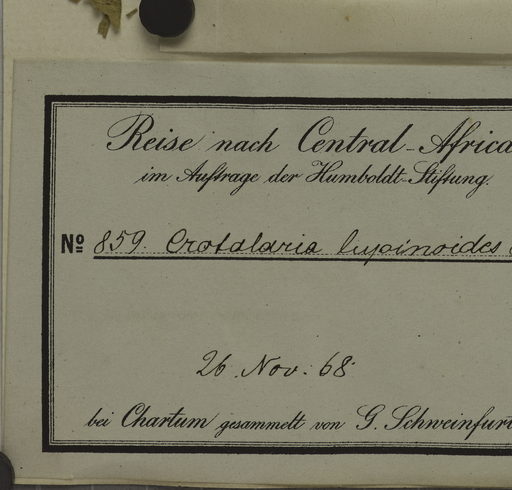 Reise nach Central-Africa
im Auftrage der Humboldt-Stiftung.
Nº 859. Crotalaria lupinoides
26. Nov. 68
bei Chartum gesammelt von G. Schweinfurt